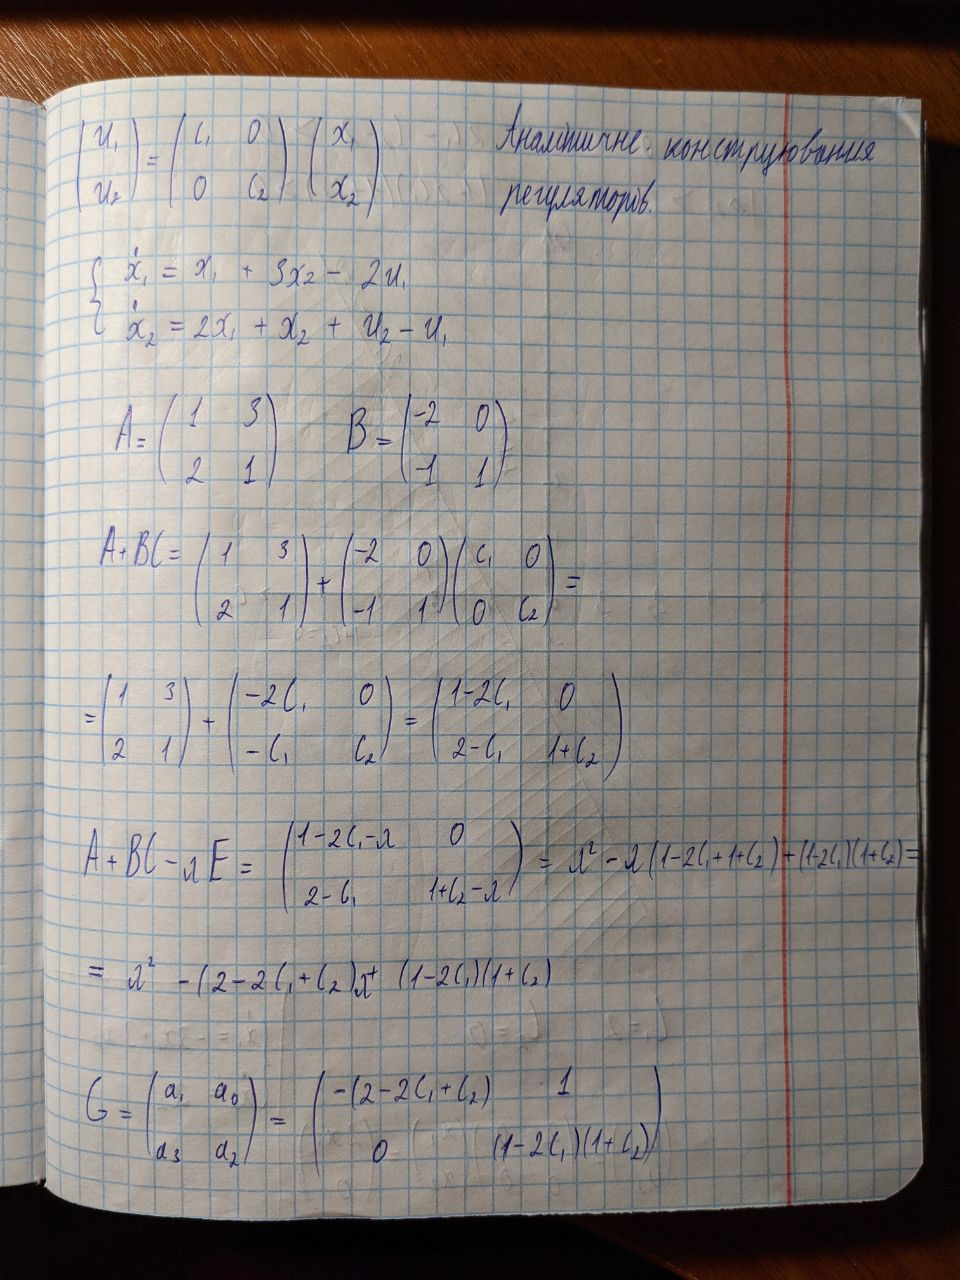 (u₁ u₂) = (C₁ 0 0 C₂) (x₁ x₂)
Аналітичне конструювання
регуляторів.
{ ẋ₁ = x₁ + 3x₂ - 2u₁
ẋ₂ = 2x₁ + x₂ + u₂ - u₁
A = (1 3 2 1) B = (-2 0 -1 1)
A+BC = (1 3 2 1) + (-2 0 -1 1) (C₁ 0 0 C₂) =
= (1 3 2 1) + (-2C₁ 0 -C₁ C₂) = (1-2C₁ 0 2-C₁ 1+C₂)
A+BC-λE = (1-2C₁-λ 0 2-C₁ 1+C₂-λ) = λ² - λ(1-2C₁+1+C₂)+(1-2C₁)(1+C₂)=
= λ² -(2-2C₁+C₂)λ+ (1-2C₁)(1+C₂)
G = (a₁ a₀ a₃ a₂) = (-(2-2C₁+C₂) 1 0 (1-2C₁)(1+C₂))